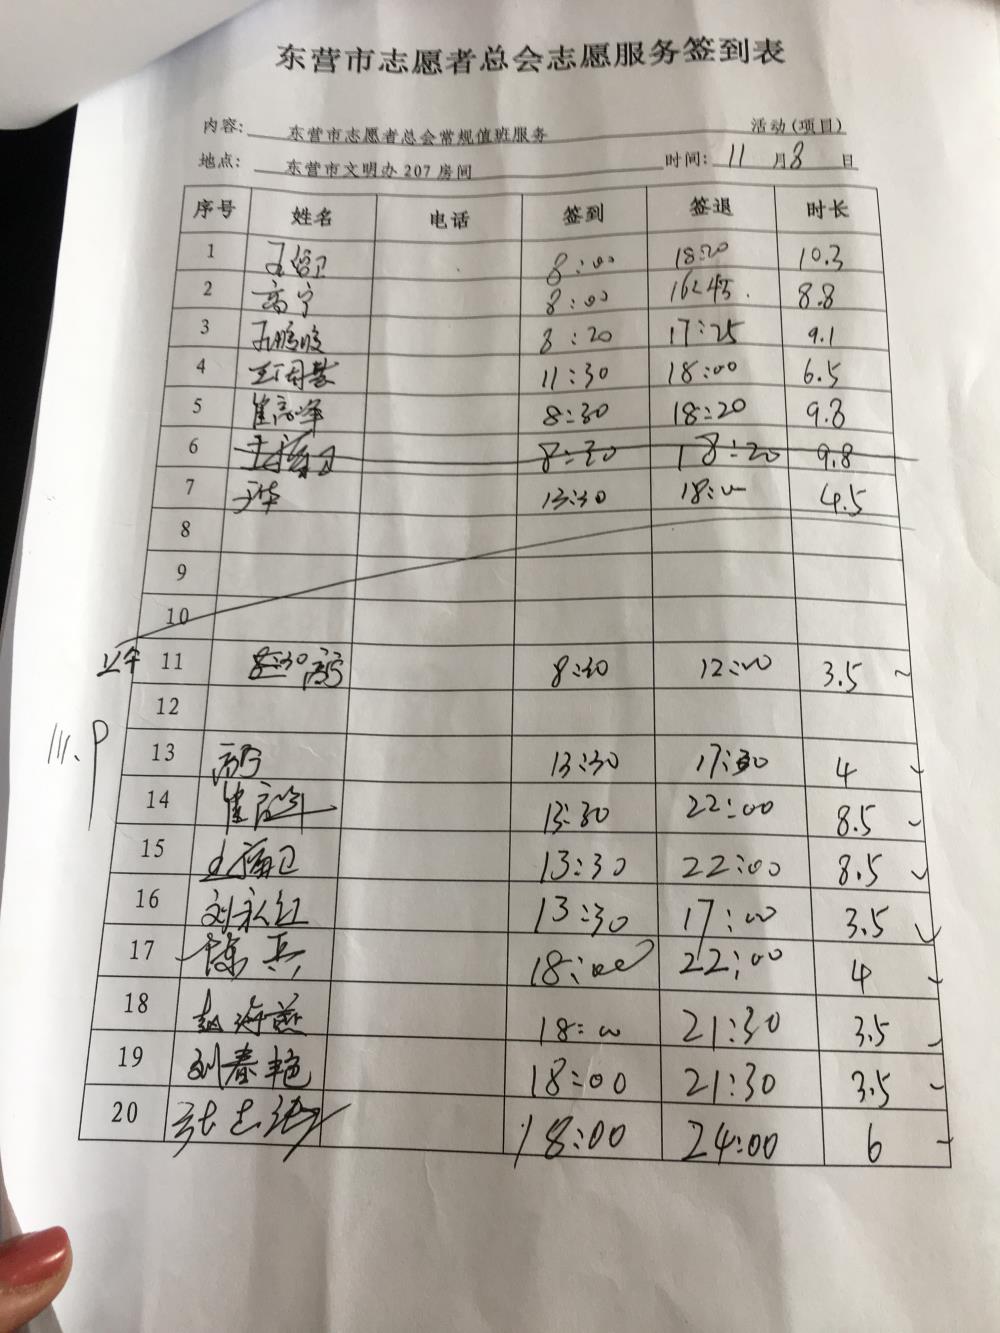 东营市志愿者总会志愿服务签到表
内容: 东营市志愿者总会常规值班服务 活动(项目)
地点: 东营市文明办 207 房间 时间: 11 月 8 日
序号 姓名 电话 签到 签退 时长
1 8:00 18:20 10.3
2 高宁 8:00 16:45 8.8
3 8:20 17:25 9.1
4 11:30 18:00 6.5
5 崔高峰 8:30 18:20 9.8
6 8:30 18:20 9.8
7 13:30 18:00 4.5
8
9
10
上午 11 8:30 8:30 12:00 3.5
12
13 13:30 17:30 4
14 崔高峰 13:30 22:00 8.5
15 13:30 22:00 8.5
16 刘永红 13:30 17:00 3.5
17 陈兵 18:00 22:00 4
18 赵海燕 18:00 21:30 3.5
19 刘春艳 18:00 21:30 3.5
20 18:00 24:00 6